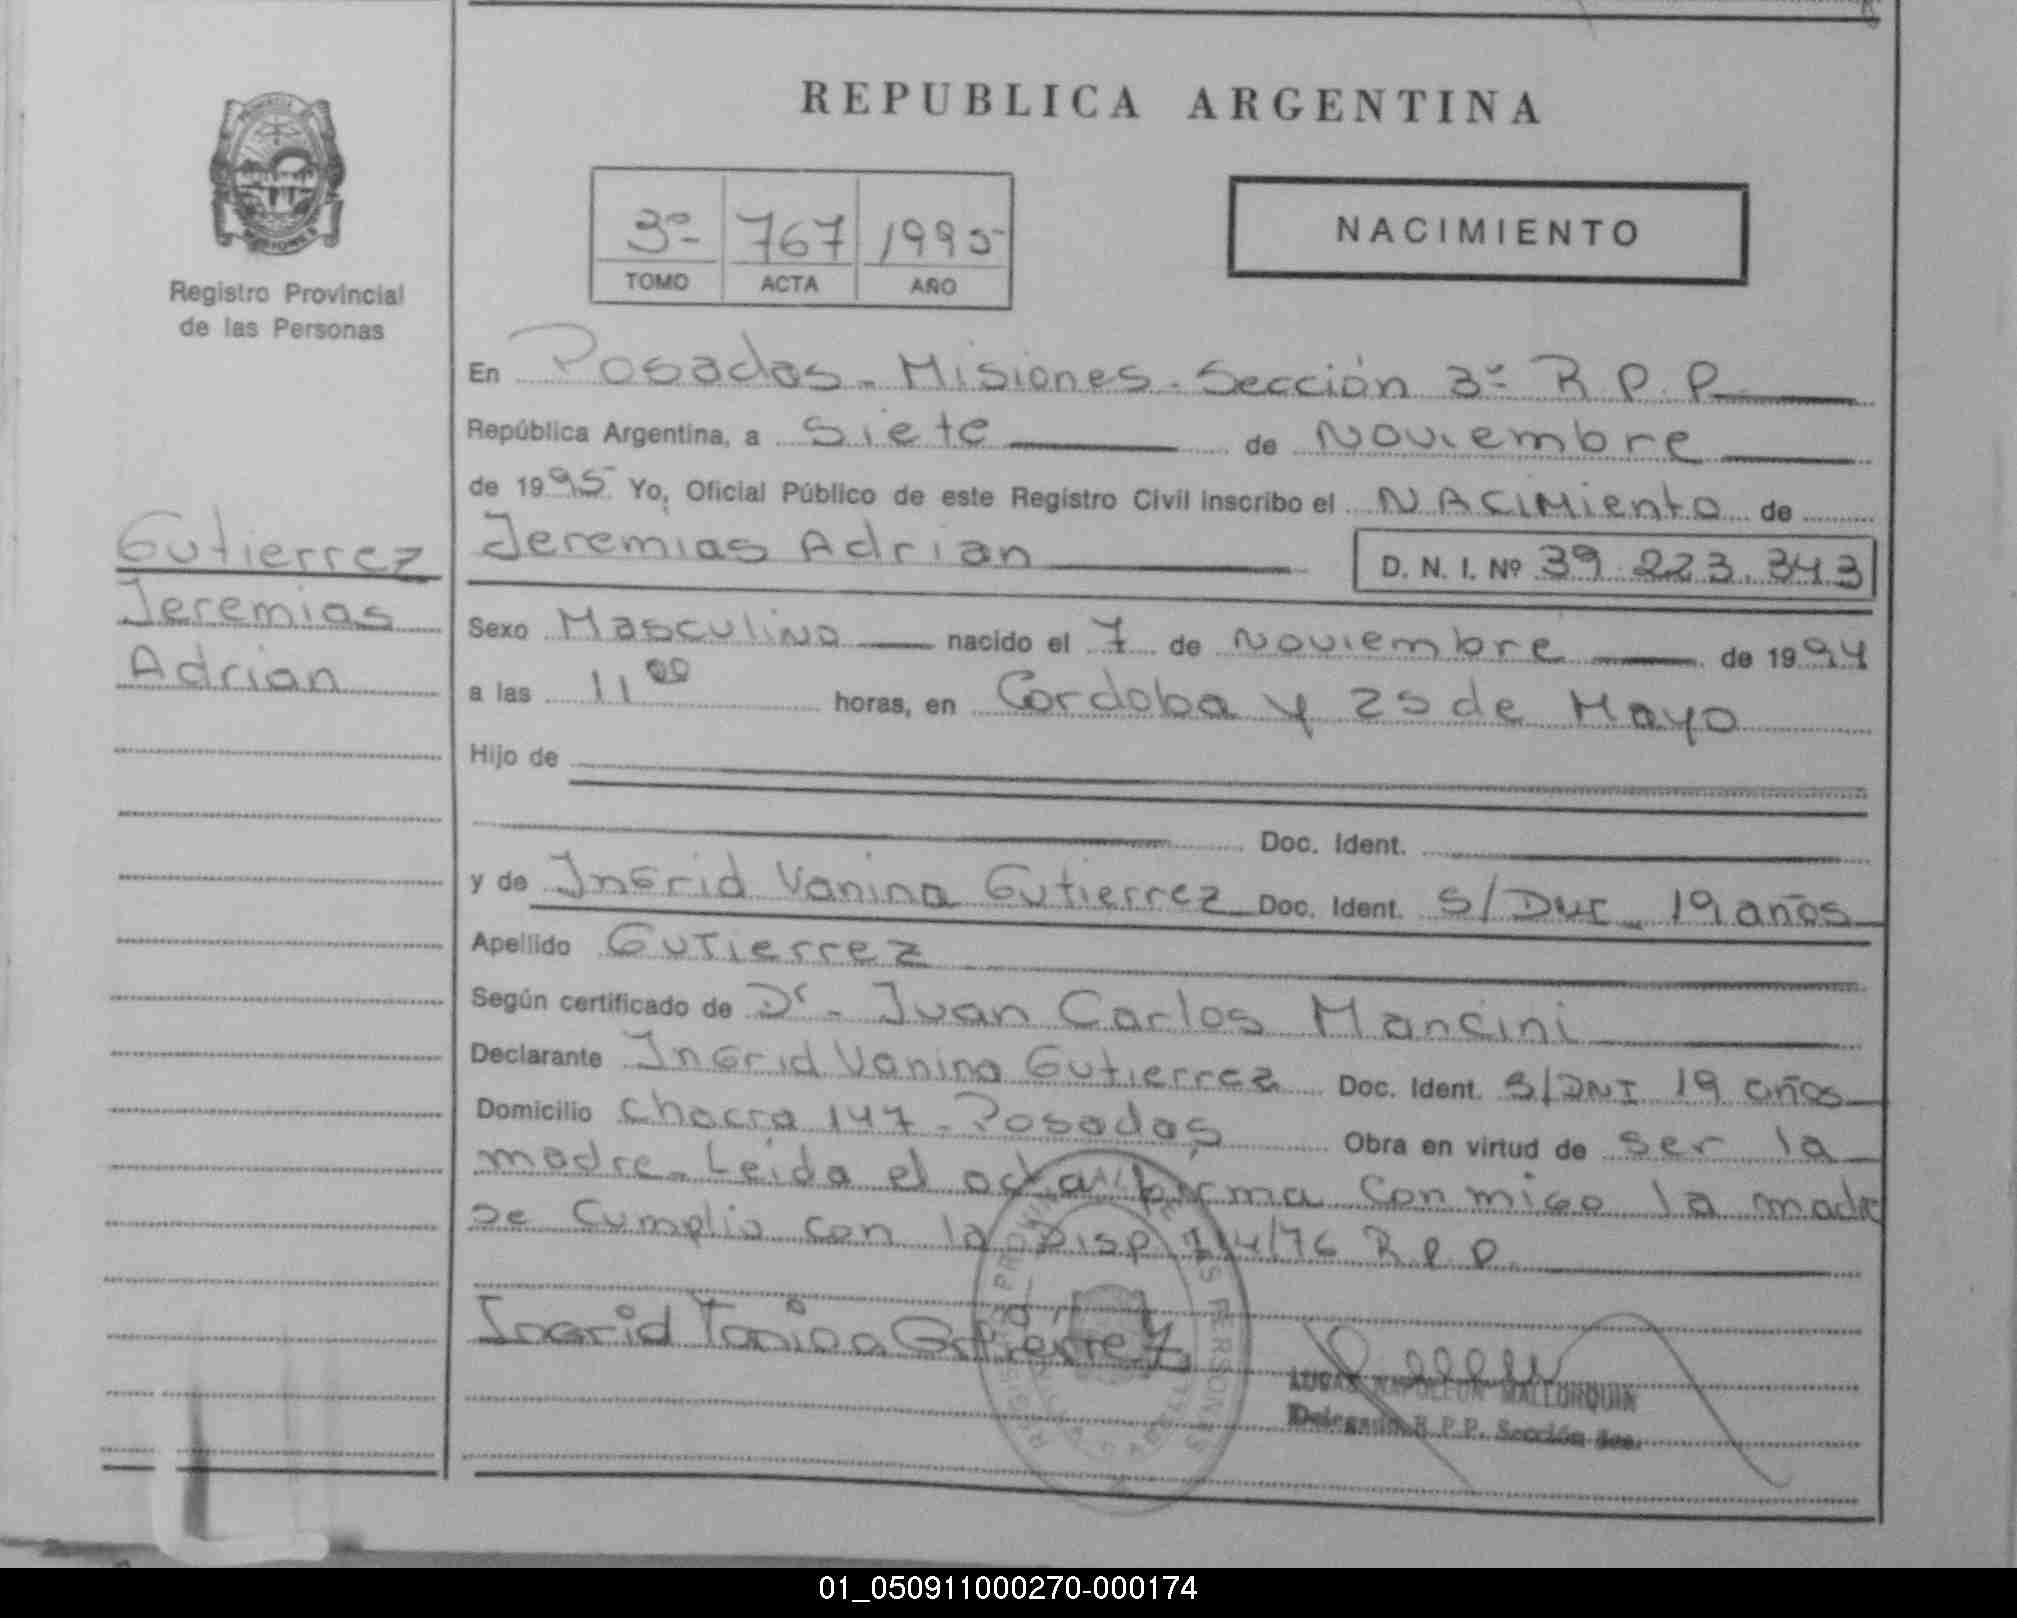 REPUBLICA ARGENTINA
3º 767 1995
TOMO ACTA AÑO
NACIMIENTO
Registro Provincial
de las Personas
Gutierrez
Jeremias
Adrian
En Posadas - Misiones - Sección 3º R P. P.
República Argentina, a Siete de Noviembre
de 1995 Yo, Oficial Público de este Registro Civil inscribo el NACIMiento de
Jeremias Adrian D. N. I. Nº 39.223.343
Sexo Masculino nacido el 7 de Noviembre de 1994
a las 11 00 horas, en Cordoba y 25 de Mayo
Hijo de
Doc. Ident.
y de Ingrid Vanina Gutierrez Doc. Ident. S/DNI 19 años
Apellido Gutierrez
Según certificado de Dr - Juan Carlos Mancini
Declarante Ingrid Vanina Gutierrez Doc. Ident. S/DNI 19 años
Domicilio Chacra 147 - Posadas Obra en virtud de ser la
madre - Leida el acta firma conmigo la madre
se cumplio con la Disp. /76 R.P.P.
Ingrid Vanina Gutierrez
LUCAS NAPOLEON MALLORQUIN
Delegado R P P. Sección 3ra.
01_050911000270-000174